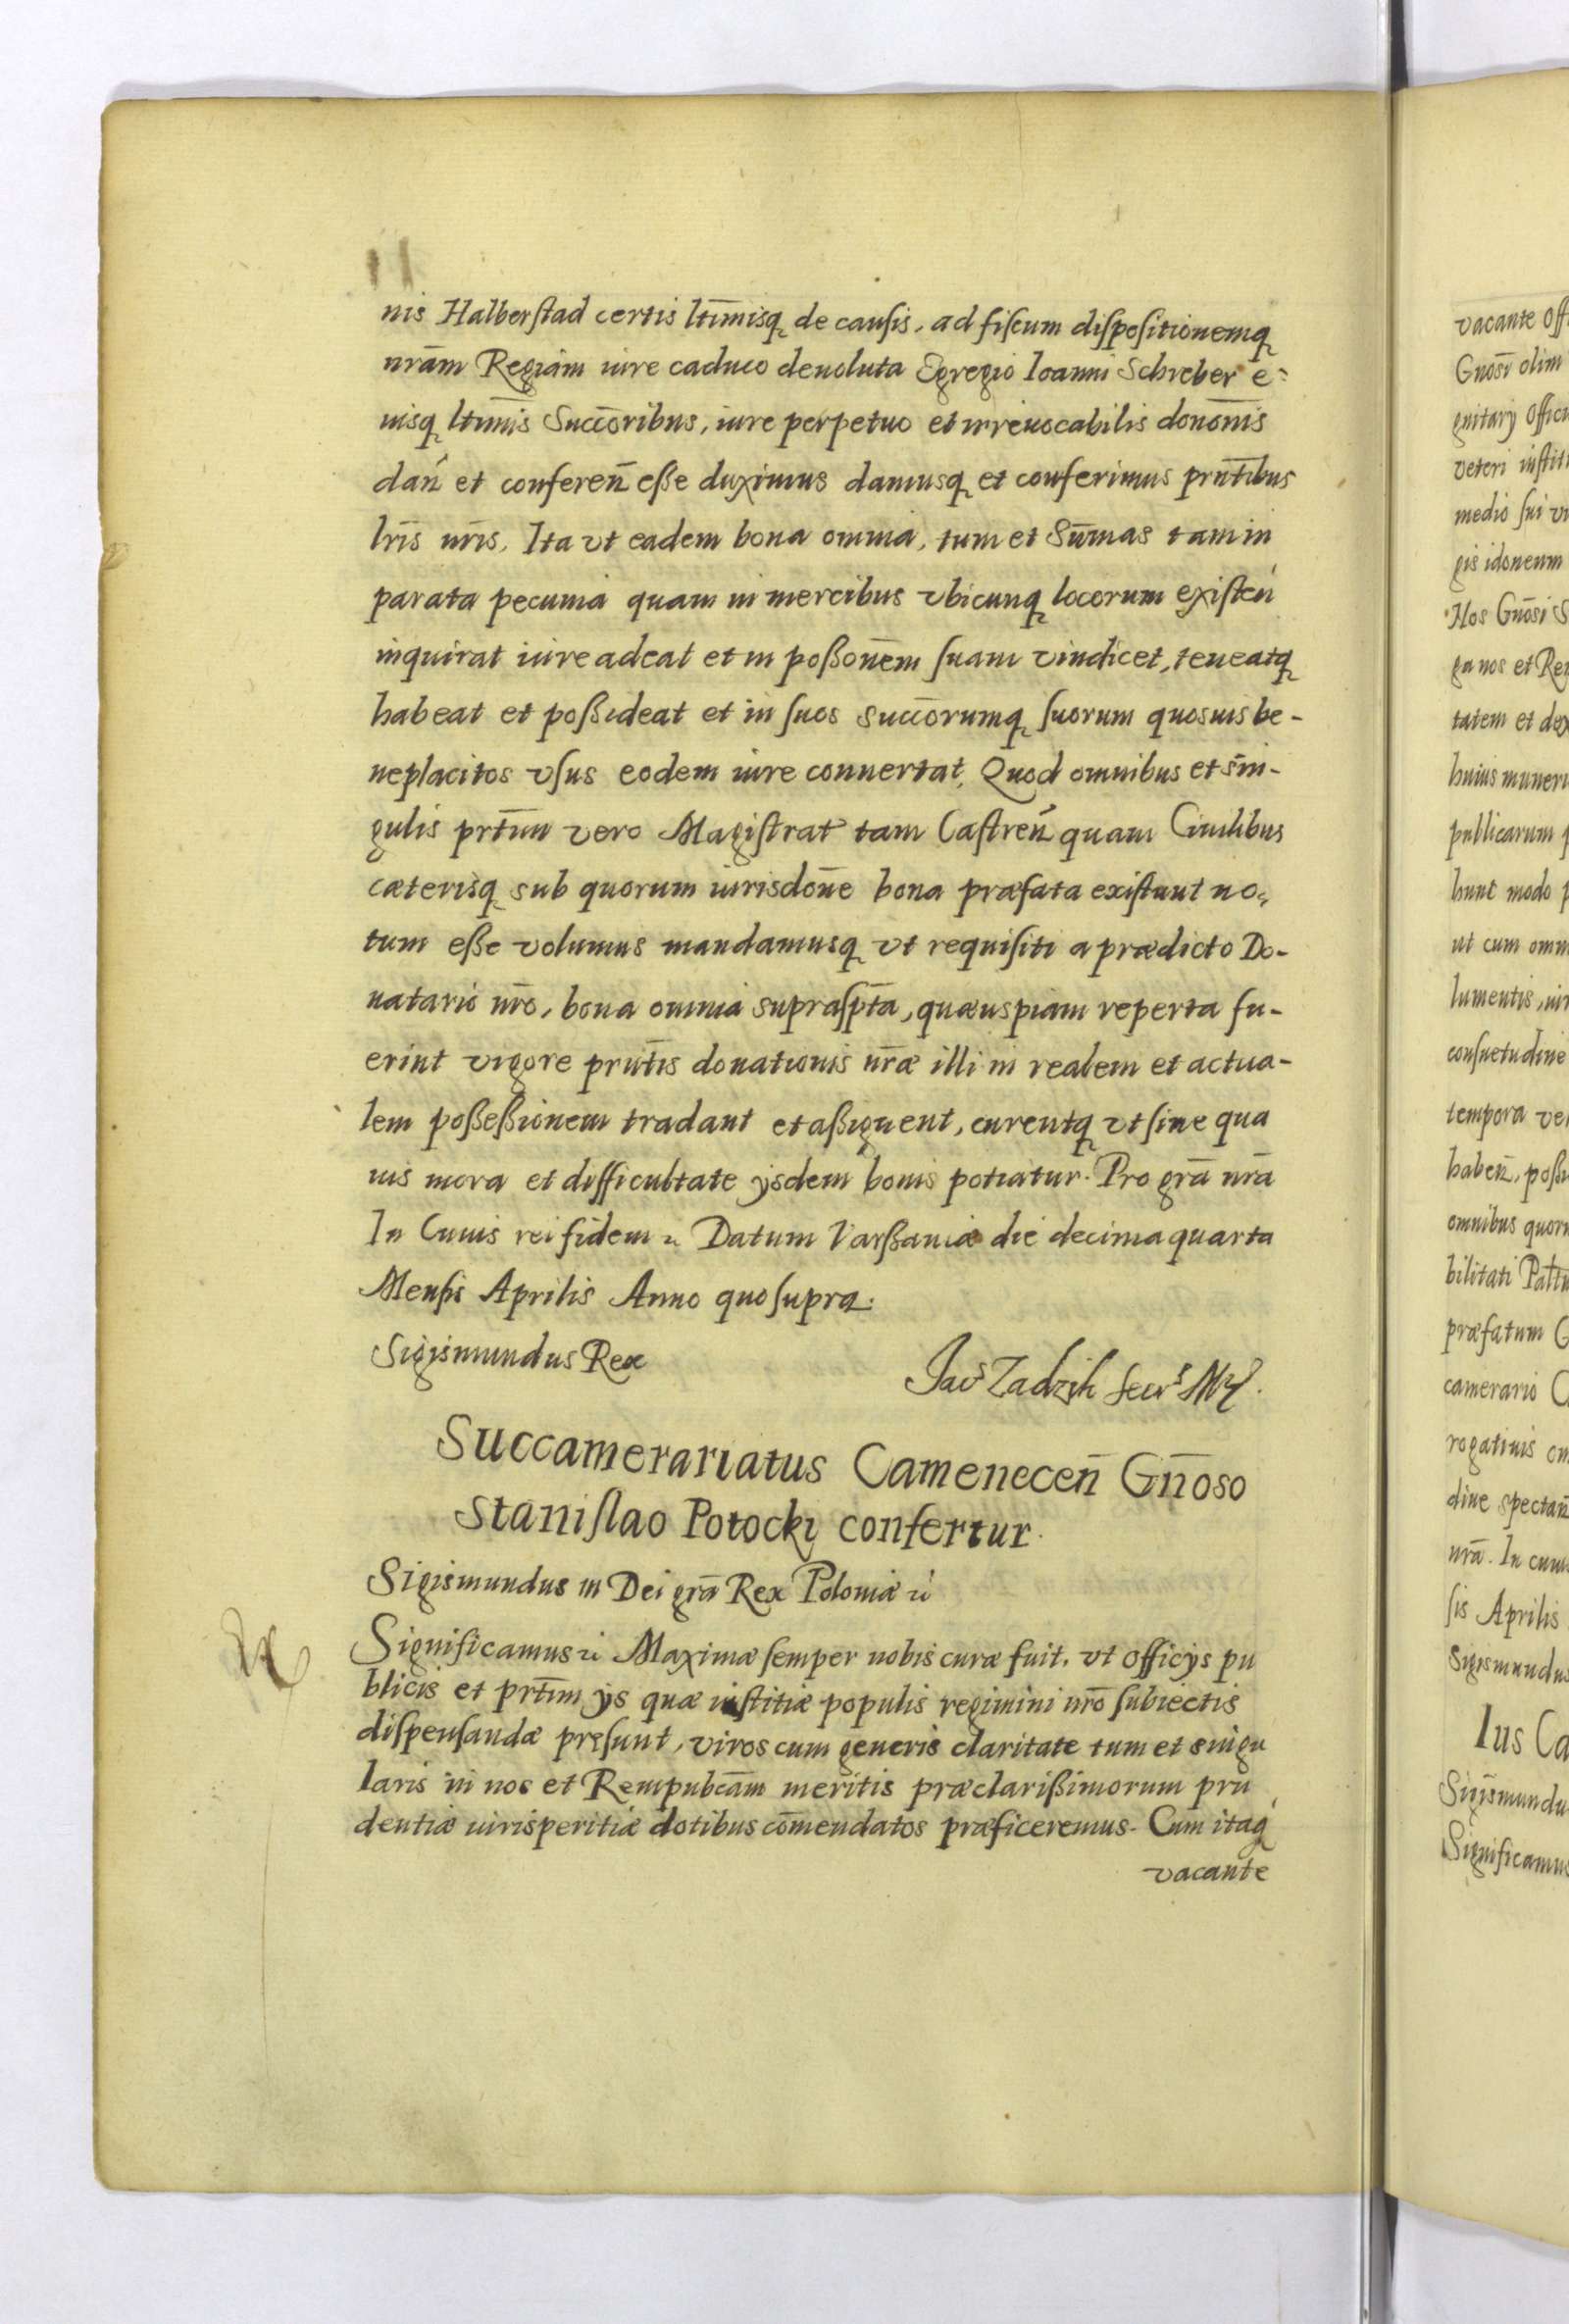 nis Halberstad certis ltīmisq de causis, ad fiscum dispositionemq
nrām Regiam iure caduco deuoluta Egregio Ioanni Schreber e=
iusq ltīmis Succōribus, iure perpetuo et irreuocabilis donōnis
dań et conferen̄ esse duximus damusq et conferimus prn̄tibus
lrīs nrīs, Ita vt eadem bona omnia, tum et Sum̄as tam in
parata pecunia quam in mercibus vbicunq locorum existeń
inquirat iure adeat et in possonēm suam vindicet, teneatq
habeat et possideat et in suos succōrumq suorum quosuis be-
neplacitos vsus eodem iure conuertat, Quod omnibus et sin-
gulis prtīm vero Magistrat tam Castreń quam Ciuilibus
cæterisq sub quorum iurisdonē bona præfata existunt no=
tum esse volumus mandamusq vt requisiti a prædicto Do-
natario nrō, bona omnia supraspt̄a, quæuspiam reperta fu-
erint vigore prn̄tis donationis nrǣ illi in realem et actua-
lem possessionem tradant et assignent, curentq vt sine qua
uis mora et difficultate ijsdem bonis potiatur. Pro grā nrā
In Cuius rei fidem &c Datum Varssauiæ die decima quarta
Mensis Aprilis Anno quo supra.
Sigismundus Rex
Jacs Zadzik Secrs Mtis.
Succamerariatus Camenecen̄ Gn̄oso
Stanislao Potocki confertur.
Sigismundus III Dei grā Rex Poloniæ &c
Significamus &c Maximæ semper nobis curæ fuit, vt officijs pu
blicis et prtīm ijs quæ iustitiæ populis regimini nrō subiectis
dispensandæ præsunt, viros cum generis claritate tum et singu
laris in nos et Rempubcām meritis præclarissimorum pru
dentiæ iurisperitiæ dotibus com̄endatos præficeremus. Cum itaq
vacante
vacante off
Gnōsī olim
gnitarij offici
veteri instit
medio sui vi
gis idoneum
Nos Gnōsi S
ga nos et Re
tatem et dex
huius muner
publicarum
hunt modo p
ut cum omn
lumentis, iur
consuetudine
tempora ve
haben̄, poss
omnibus quor
bilitati Palt
præfatum G
camerario C
rogatiuis
dine spectan̄
nrā. In cuius
sis Aprilis
Sigismundus
Ius Ca
Sigismundu
Significamus